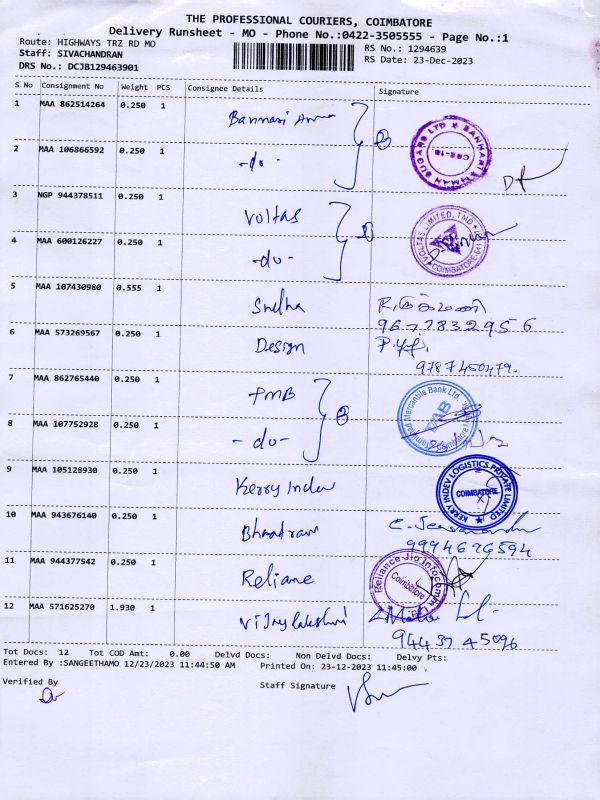 THE PROFESSIONAL COURIERS, COIMBATORE
Delivery Runsheet - MO - Phone No.:0422-3505555 - Page No.:1
Route: HIGHWAYS TRZ RD MO RS No.: 1294639
Staff: SIVACHANDRAN RS Date: 23-Dec-2023
DRS No.: DCJB129463901
S No Consignment No Weight PCS Consignee Details Signature
1 MAA 862514264 0.250 1 Bannari Amman
2 MAA 106866592 0.250 1 -do-
3 NGP 944378511 0.250 1 Voltas
VOLTAS LIMITED, TMD
4 MAA 600126227 0.250 1 -do-
COIMBATORE
5 MAA 107430980 0.555 1 Sneha
9677832956
6 MAA 573269567 0.250 1 Design
9787450479.
7 MAA 862765440 0.250 1 TMB
Mercantile Bank Ltd.
TMB
8 MAA 107752928 0.250 1 -do-
9 MAA 105128930 0.250 1 Kerry Indev
KERRY INDEV LOGISTICS PRIVATE LIMITED
COIMBATORE
10 MAA 943676140 0.250 1
9994626594
11 MAA 944377542 0.250 1 Reliane
Reliance Jio Infocomm
Coimbatore
12 MAA 571625270 1.930 1 Vijaylakshmi
94437 45096
Tot Docs: 12 Tot COD Amt: 0.00 Delvd Docs: Non Delvd Docs: Delvy Pts:
Entered By :SANGEETHAMO 12/23/2023 11:44:50 AM Printed On: 23-12-2023 11:45:00
Verified By Staff Signature